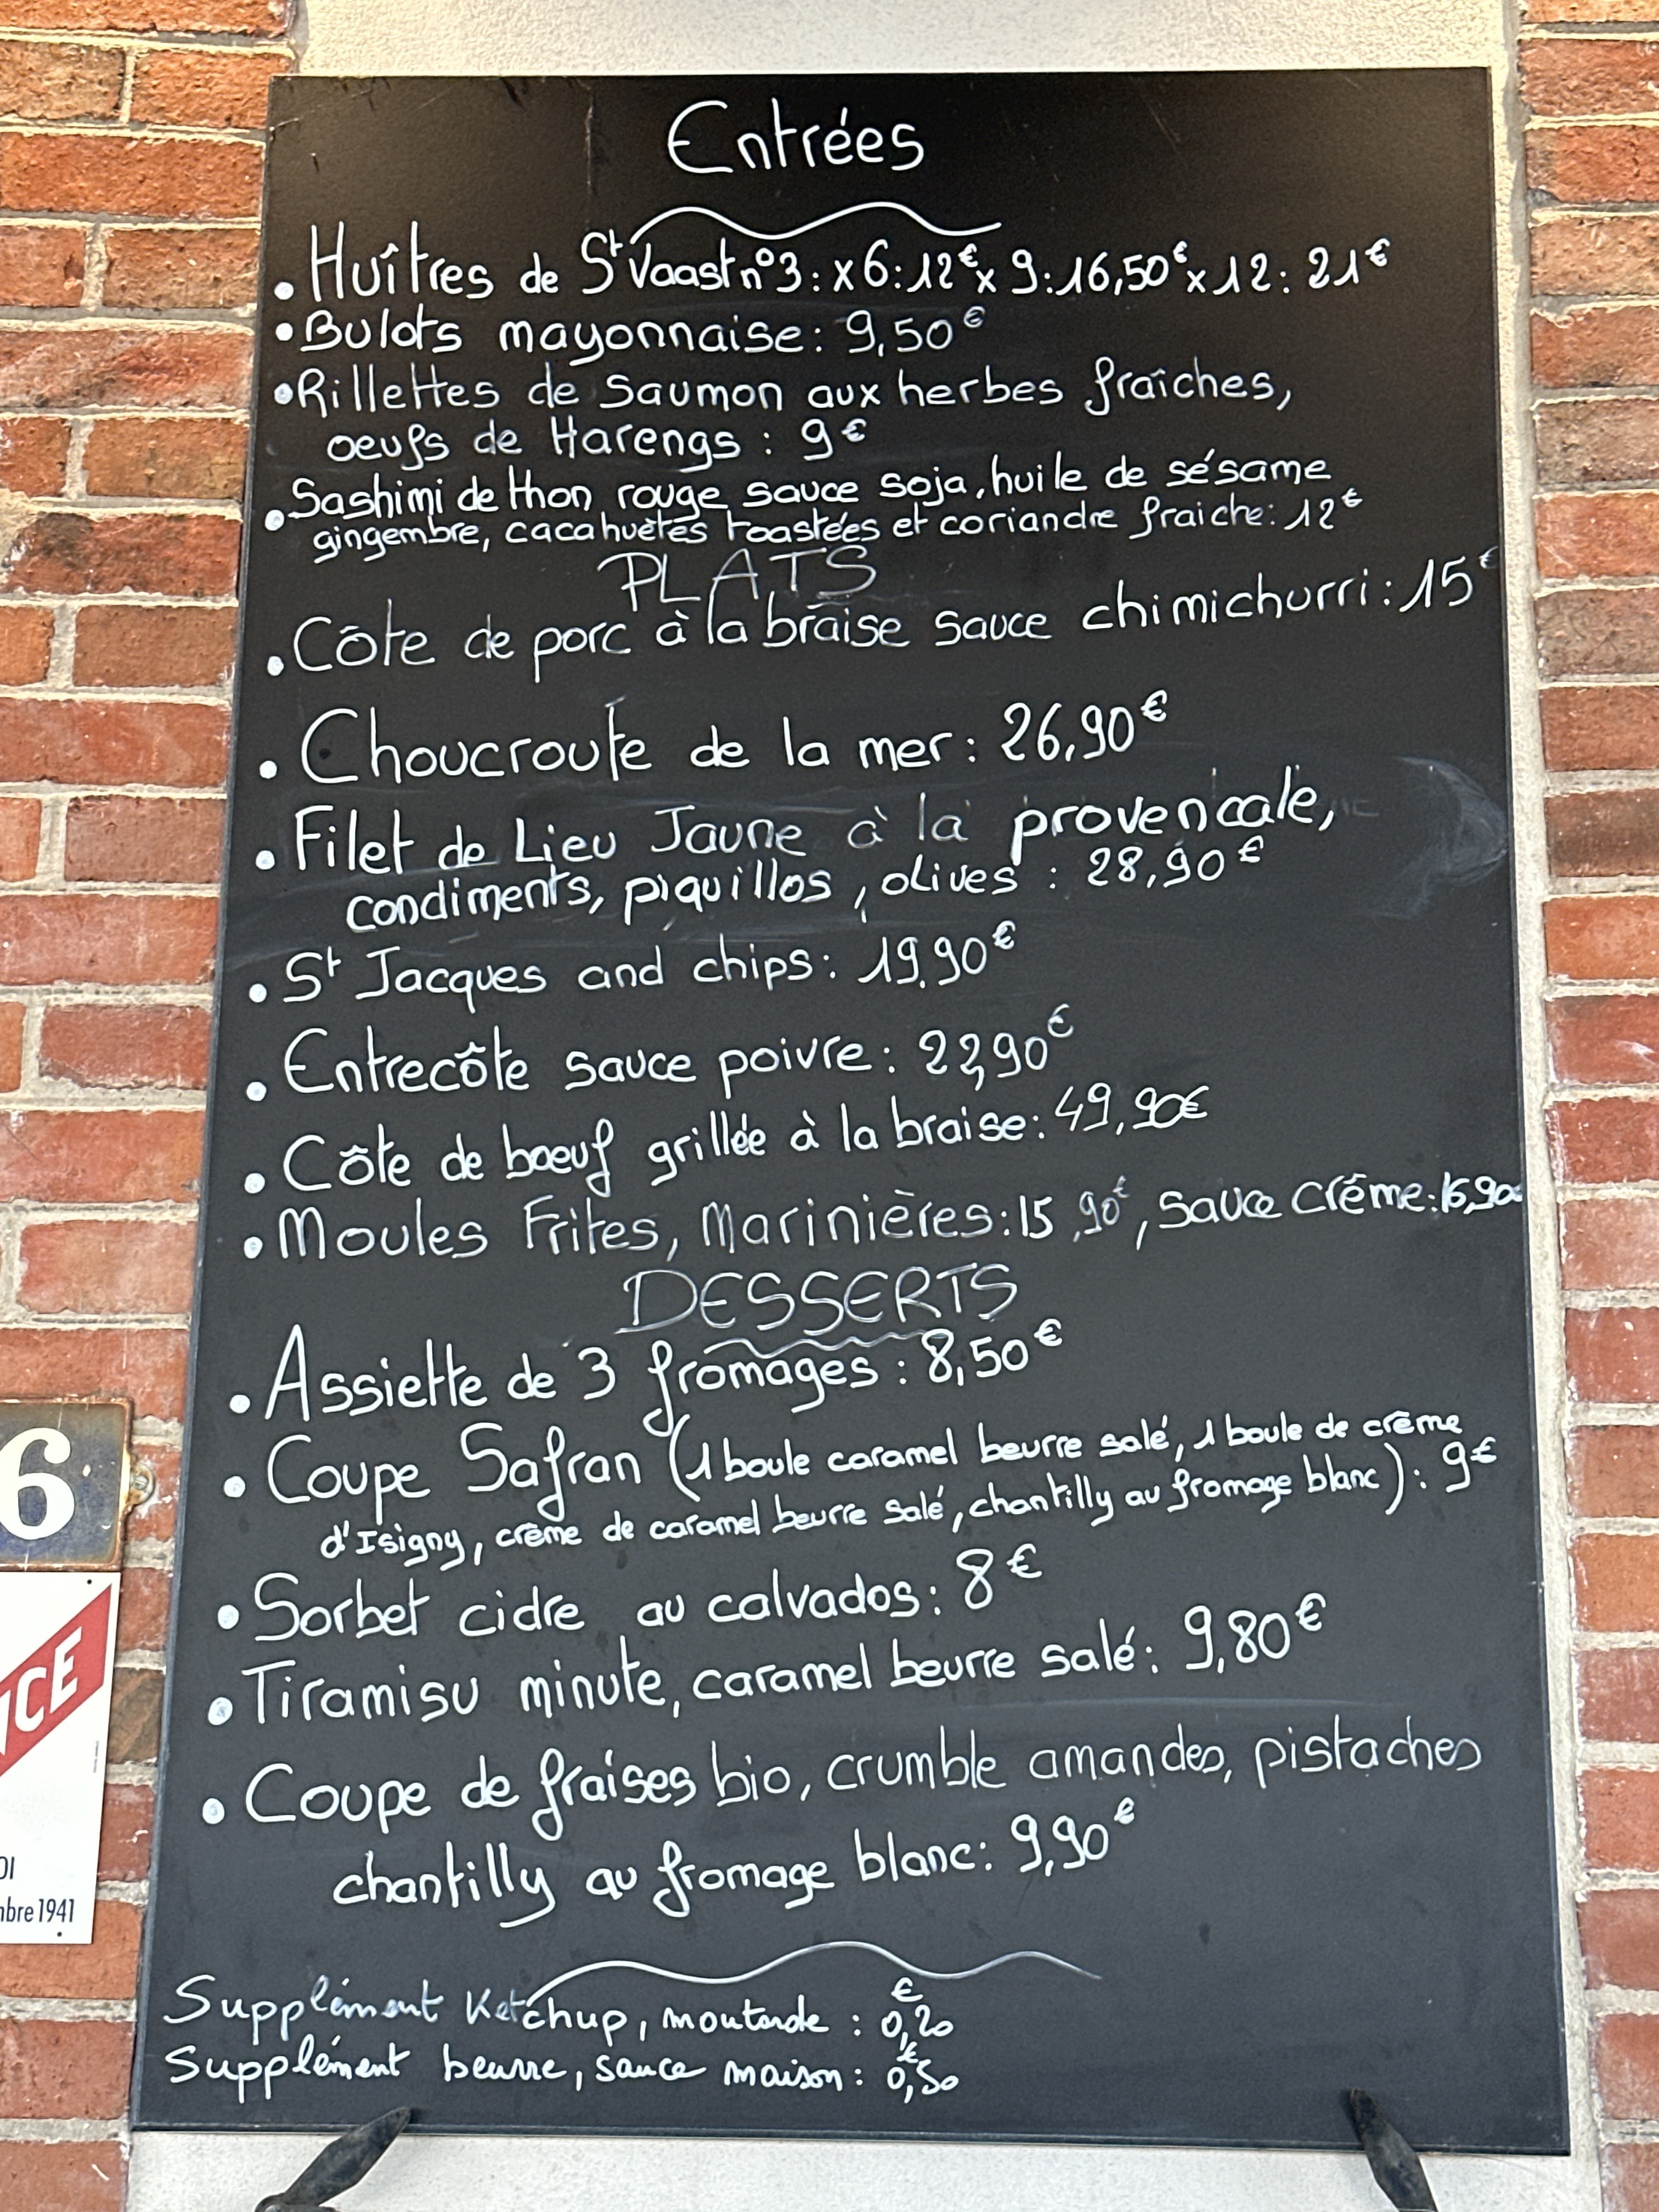 Entrées
• Huîtres de St Vaast n°3 : x 6 : 12€ x 9 : 16,50€ x 12 : 21€
• Bulots mayonnaise : 9,50€
• Rillettes de Saumon aux herbes fraîches,
oeufs de Harengs : 9€
• Sashimi de thon rouge sauce soja, huile de sésame
gingembre, cacahuètes toastées et coriandre fraiche : 12€
PLATS
• Côte de porc à la braise sauce chimichurri : 15€
• Choucroute de la mer : 26,90€
• Filet de Lieu Jaune à la provencale,
condiments, piquillos, olives : 28,90€
• St Jacques and chips : 19,90€
• Entrecôte sauce poivre : 22,90€
• Côte de bœuf grillée à la braise : 49,90€
• Moules Frites, Marinières : 15,90€, sauce crême : 16,90€
DESSERTS
• Assiette de 3 fromages : 8,50€
• Coupe Safran (1 boule caramel beurre salé, 1 boule de crême
d'Isigny, crème de caramel beurre salé, chantilly au fromage blanc) : 9€
• Sorbet cidre au calvados : 8€
• Tiramisu minute, caramel beurre salé : 9,80€
• Coupe de fraises bio, crumble amandes, pistaches
chantilly au fromage blanc : 9,90€
Supplément Ketchup, moutarde : 0,20€
Supplément beurre, sauce maison : 0,50€
6
1941